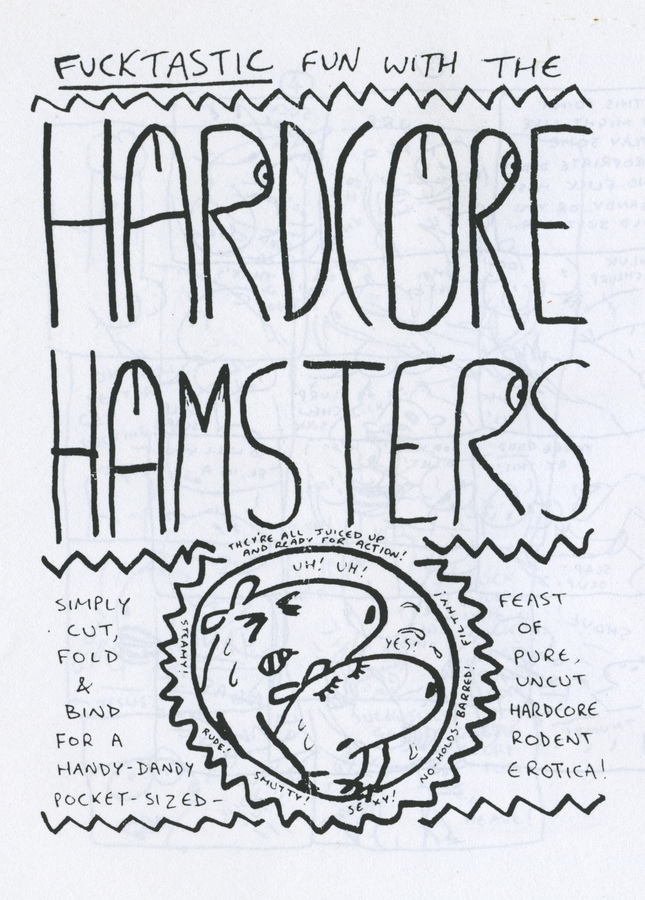 FUCKTASTIC FUN WITH THE
HARDCORE
HAMSTERS
THEY'RE ALL JUICED UP
AND READY FOR ACTION!
UH! UH!
YES!
STEAMY!
FILTHY!
RUDE!
SMUTTY!
SEXY!
NO-HOLDS-BARRED!
SIMPLY
CUT,
FOLD
&
BIND
FOR A
HANDY-DANDY
POCKET-SIZED-
FEAST
OF
PURE,
UNCUT
HARDCORE
RODENT
EROTICA!